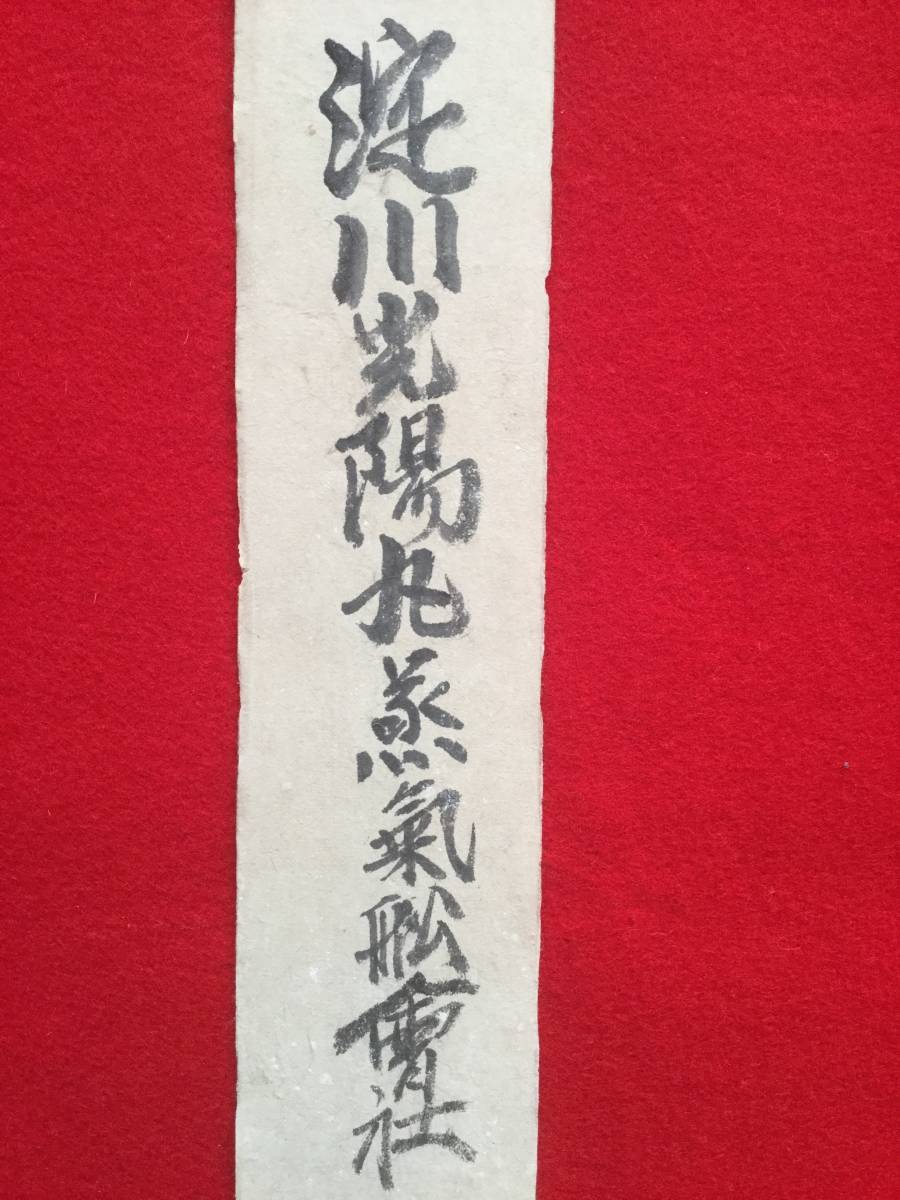 淀川光陽丸蒸氣舩會社